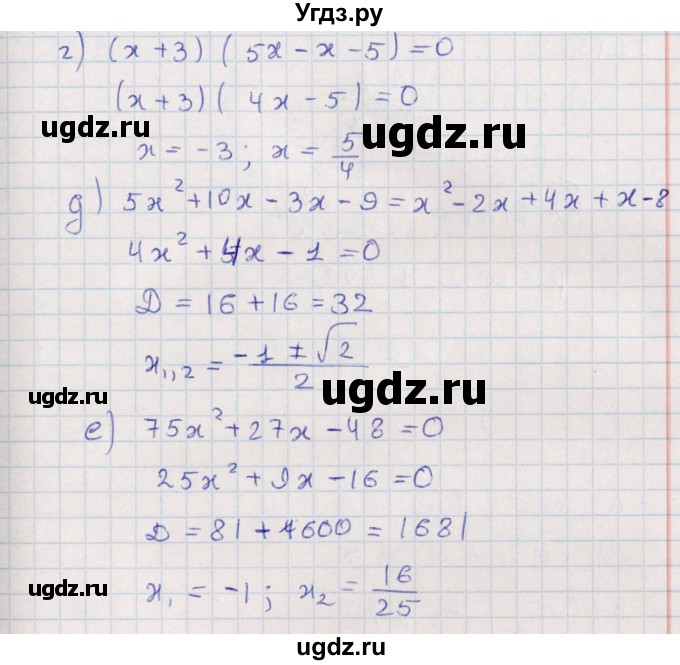 Угдз.ру
г) (x + 3) ( 5x - x - 5) = 0
(x + 3) ( 4x - 5) = 0
ugdz.ru ugdz.ru
x = -3 ; x = 5/4
д) 5x² + 10x - 3x - 9 = x² - 2x + 4x + x - 8
4x² + 4x - 1 = 0
D = 16 + 16 = 32
x₁,₂ = (-1 ± √2)/2
ugdz.ru ugdz.ru
е) 75x² + 27x - 48 = 0
25x² + 9x - 16 = 0
D = 81 + 1600 = 1681
ugdz.ru ugdz.ru
x₁ = -1 ; x₂ = 16/25
ugdz.ru